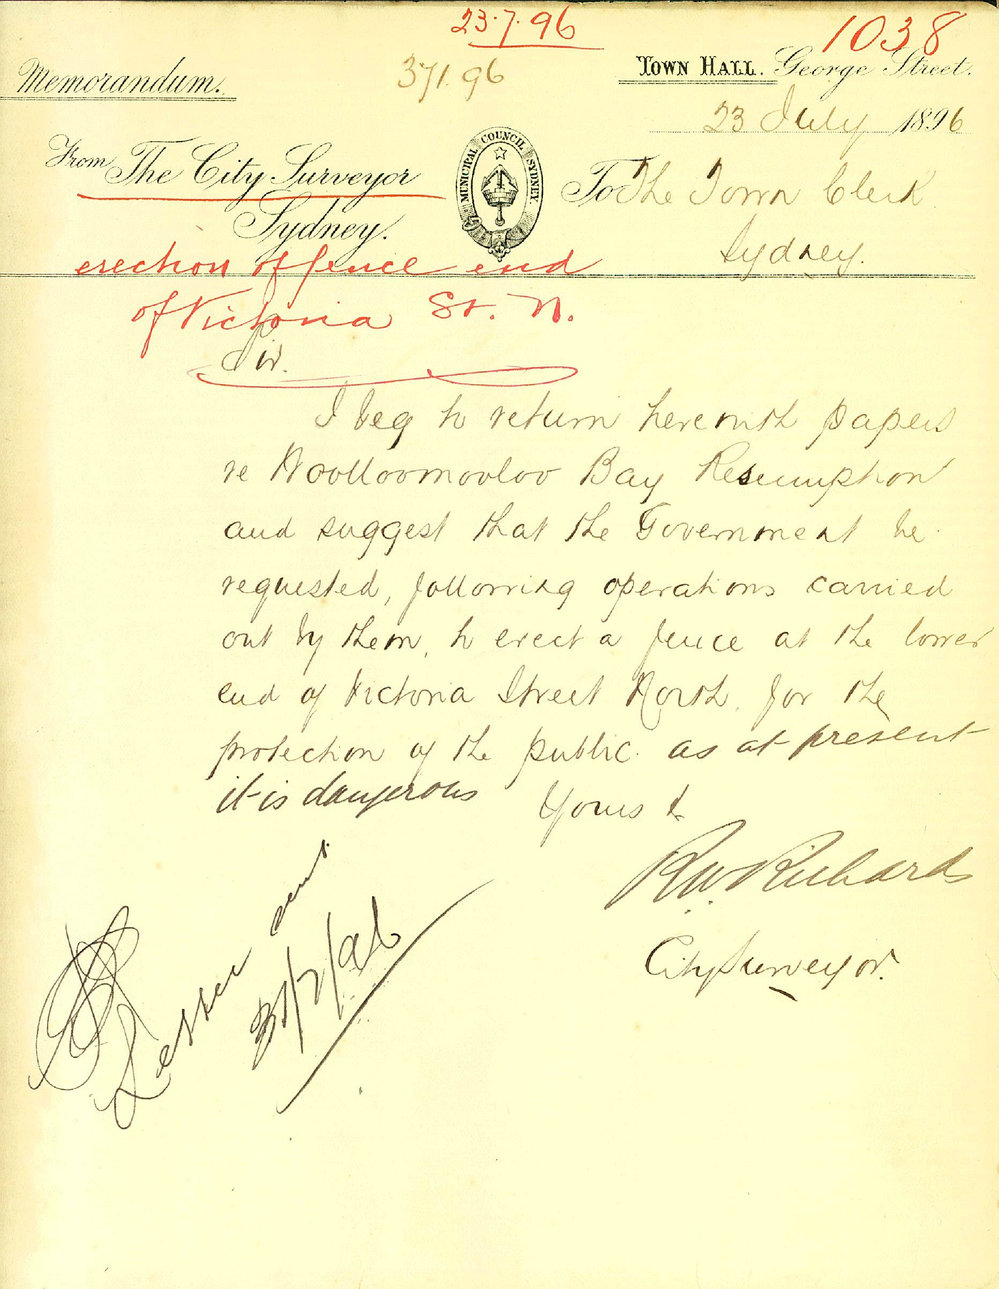 23.7.96
1038
371.96
Memorandum.
TOWN HALL. George Street.
23 July 1896
From The City Surveyor
Sydney.
MUNICIPAL COUNCIL SYDNEY
To The Town Clerk
Sydney.
erection of fence end
of Victoria St. N.
Sir.
I beg to return herewith papers
re Woolloomooloo Bay Resumption
and suggest that the Government be
requested, following operations carried
out by them, to erect a fence at the lower
end of Victoria Street North, for the
protection of the public as at present
it is dangerous
Yours &
R.W. Richards
City Surveyor.
31/7/96